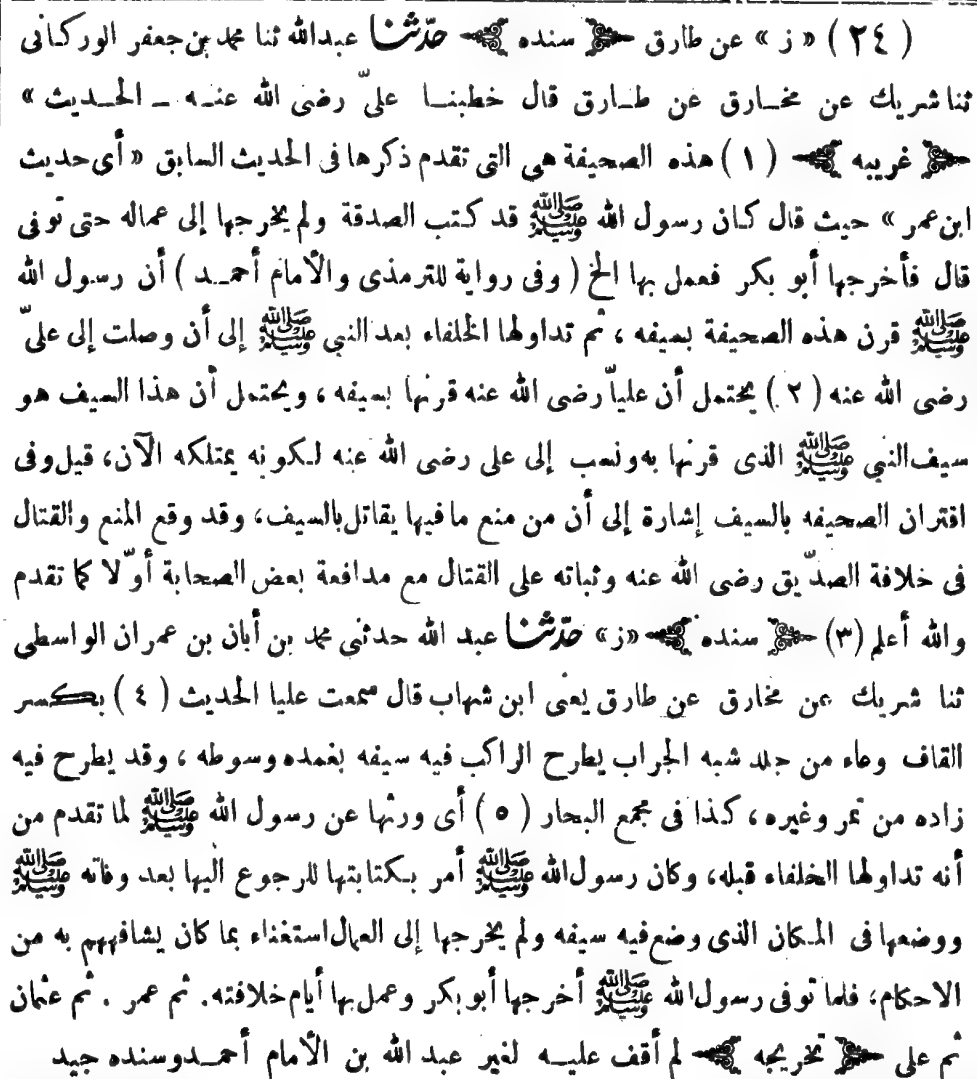 ( ٢٤ ) « ز » عن طارق ﴿ سنده ﴾ حدّثنا عبدالله ثنا محمد بن جعفر الوركانى
ثنا شريك عن مخارق عن طارق قال خطبنا علىّ رضى الله عنه – الحديث »
﴿ غريبه ﴾ ( ١ ) هذه الصحيفة هى التى تقدم ذكرها فى الحديث السابق « أى حديث
ابن عمر » حيث قال كان رسول الله ﷺ قد كتب الصدقة ولم يخرجها إلى عماله حتى توفى
قال فأخرجها أبو بكر فعمل بها الخ ( وفى رواية للترمذى والأمام أحمد ) أن رسول الله
ﷺ قرن هذه الصحيفة بسيفه ، ثم تداولها الخلفاء بعد النبي ﷺ إلى أن وصلت إلى علىّ
رضى الله عنه ( ٢ ) يحتمل أن علياً رضى الله عنه قرنها بسيفه ، ويحتمل أن هذا السيف هو
سيف النبي ﷺ الذى قرنها به ونسب إلى على رضى الله عنه لكونه يمتلكه الآن، قيل وفى
اقتران الصحيفه بالسيف إشارة إلى أن من منع مافيها يقاتل بالسيف، وقد وقع المنع والقتال
فى خلافة الصدّيق رضى الله عنه وثباته على القتال مع مدافعة بعض الصحابة أوّلا كما تقدم
والله أعلم (٣) ﴿ سنده ﴾ «ز» حدّثنا عبد الله حدثنى محمد بن أبان بن عمران الواسطى
ثنا شريك عن مخارق عن طارق يعنى ابن شهاب قال سمعت عليا الحديث ( ٤ ) بكسر
القاف وعاء من جلد شبه الجراب يطرح الراكب فيه سيفه بغمده وسوطه ، وقد يطرح فيه
زاده من تمر وغيره ، كذا فى مجمع البحار ( ٥ ) أى ورثها عن رسول الله ﷺ لما تقدم من
أنه تداولها الخلفاء قبله، وكان رسول الله ﷺ أمر بكتابتها للرجوع اليها بعد وفاته ﷺ
ووضعها فى المكان الذى وضع فيه سيفه ولم يخرجها إلى العمال استغناء بما كان يشافههم به من
الاحكام، فلما توفى رسول الله ﷺ أخرجها أبو بكر وعمل بها أيام خلافته. ثم عمر . ثم عثمان
ثم على ﴿ تخريجه ﴾ لم أقف عليه لغير عبد الله بن الأمام أحمد وسنده جيد